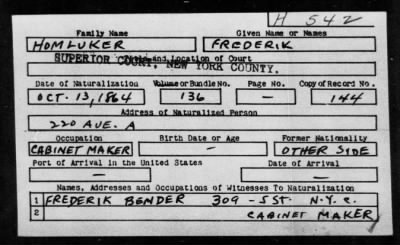 H 542
Family Name Given Name or Names
HOMLUKER FREDERIK
Title and Location of Court
SUPERIOR COURT, NEW YORK COUNTY.
Date of Naturalization Volume or Bundle No. Page No. Copy of Record No.
OCT. 13, 1864 136 — 144
Address of Naturalized Person
220 AUE. A
Occupation Birth Date or Age Former Nationality
CABINET MAKER — OTHER SIDE
Port of Arrival in the United States Date of Arrival
— —
Names, Addresses and Occupations of Witnesses To Naturalization
1 FREDERIK BENDER 309 - 5 ST. N.Y.C.
2 CABINET MAKER